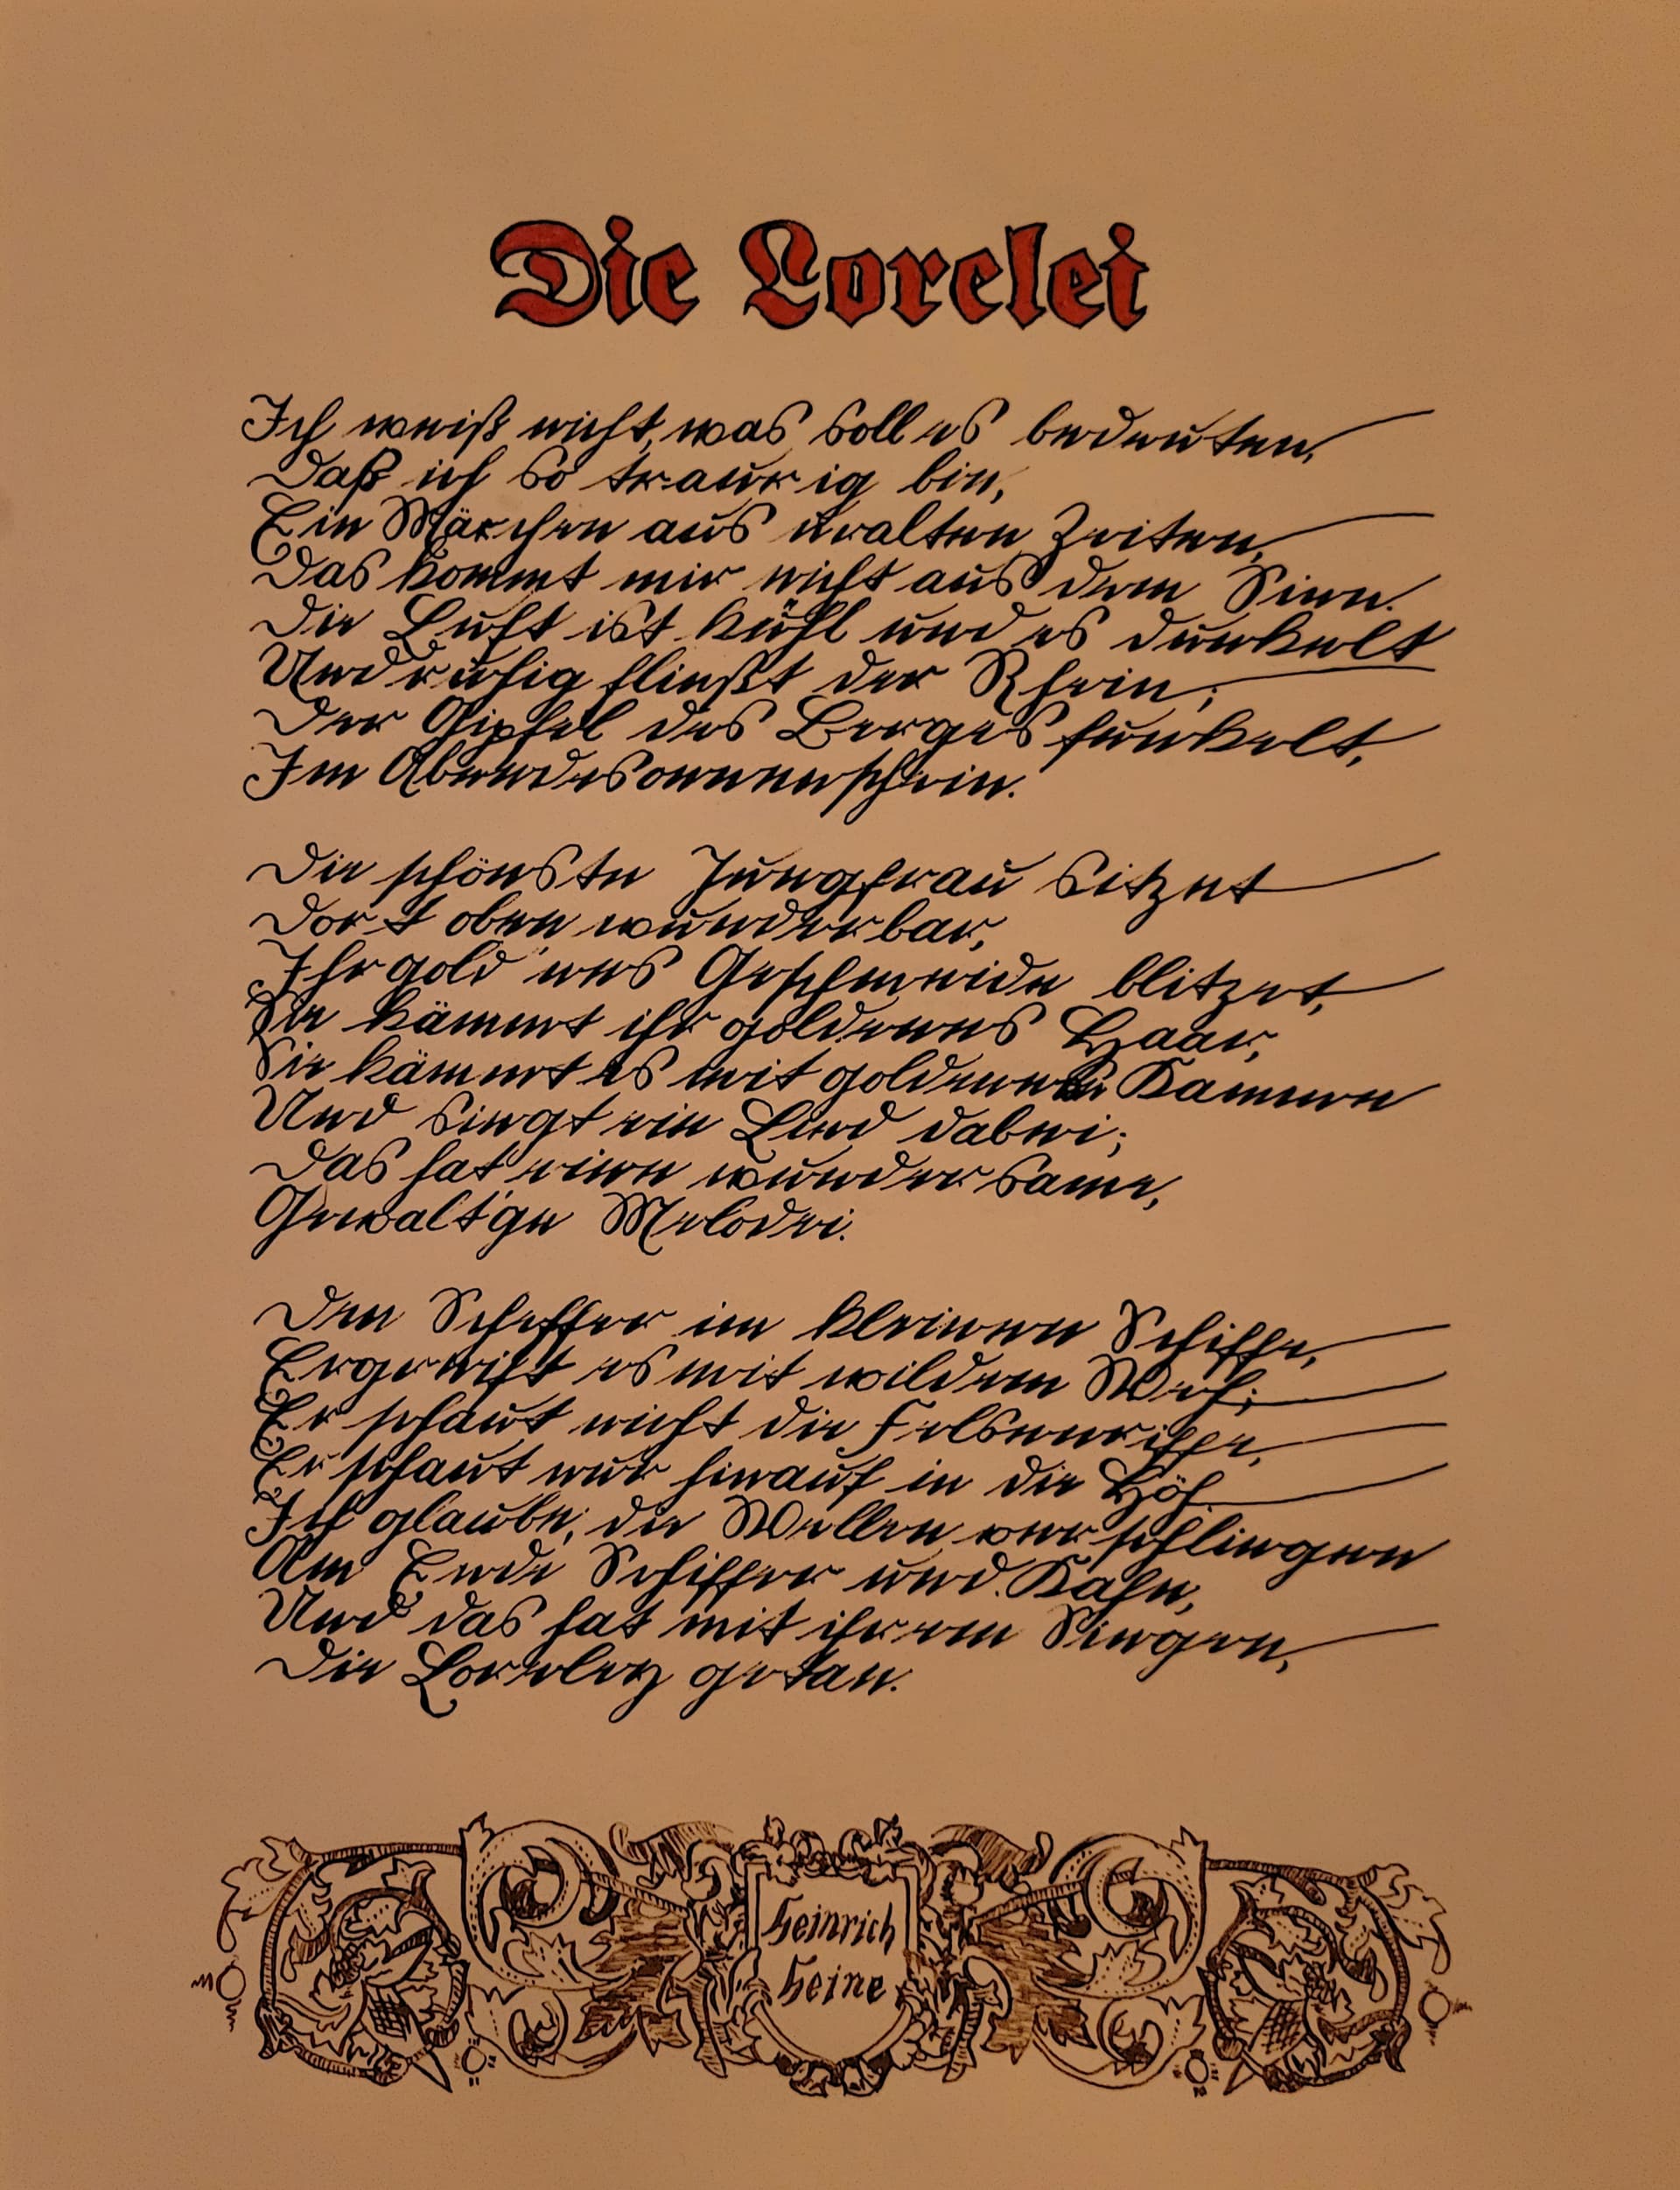 Die Lorelei
Ich weiß nicht, was soll es bedeuten,
Daß ich so traurig bin,
Ein Märchen aus uralten Zeiten,
Das kommt mir nicht aus dem Sinn.
Die Luft ist kühl und es dunkelt
Und ruhig fließt der Rhein;
Der Gipfel des Berges funkelt,
Im Abendesonnenschein.
Die schönste Jungfrau sitzet
Dort oben wunderbar,
Ihr goldenes Geschmeide blitzet,
Sie kämmt ihr goldenes Haar,
Sie kämmt es mit goldenem Kamme
Und singt ein Lied dabei;
Das hat eine wundersame,
Gewalt'ge Melodei.
Den Schiffer im kleinen Schiffe,
Ergreift es mit wildem Weh;
Er schaut nicht die Felsenriffe,
Er schaut nur hinauf in die Höh.
Ich glaube, die Wellen verschlingen
Am Ende Schiffer und Kahn,
Und das hat mit ihrem Singen,
Die Loreley getan.
Heinrich
Heine